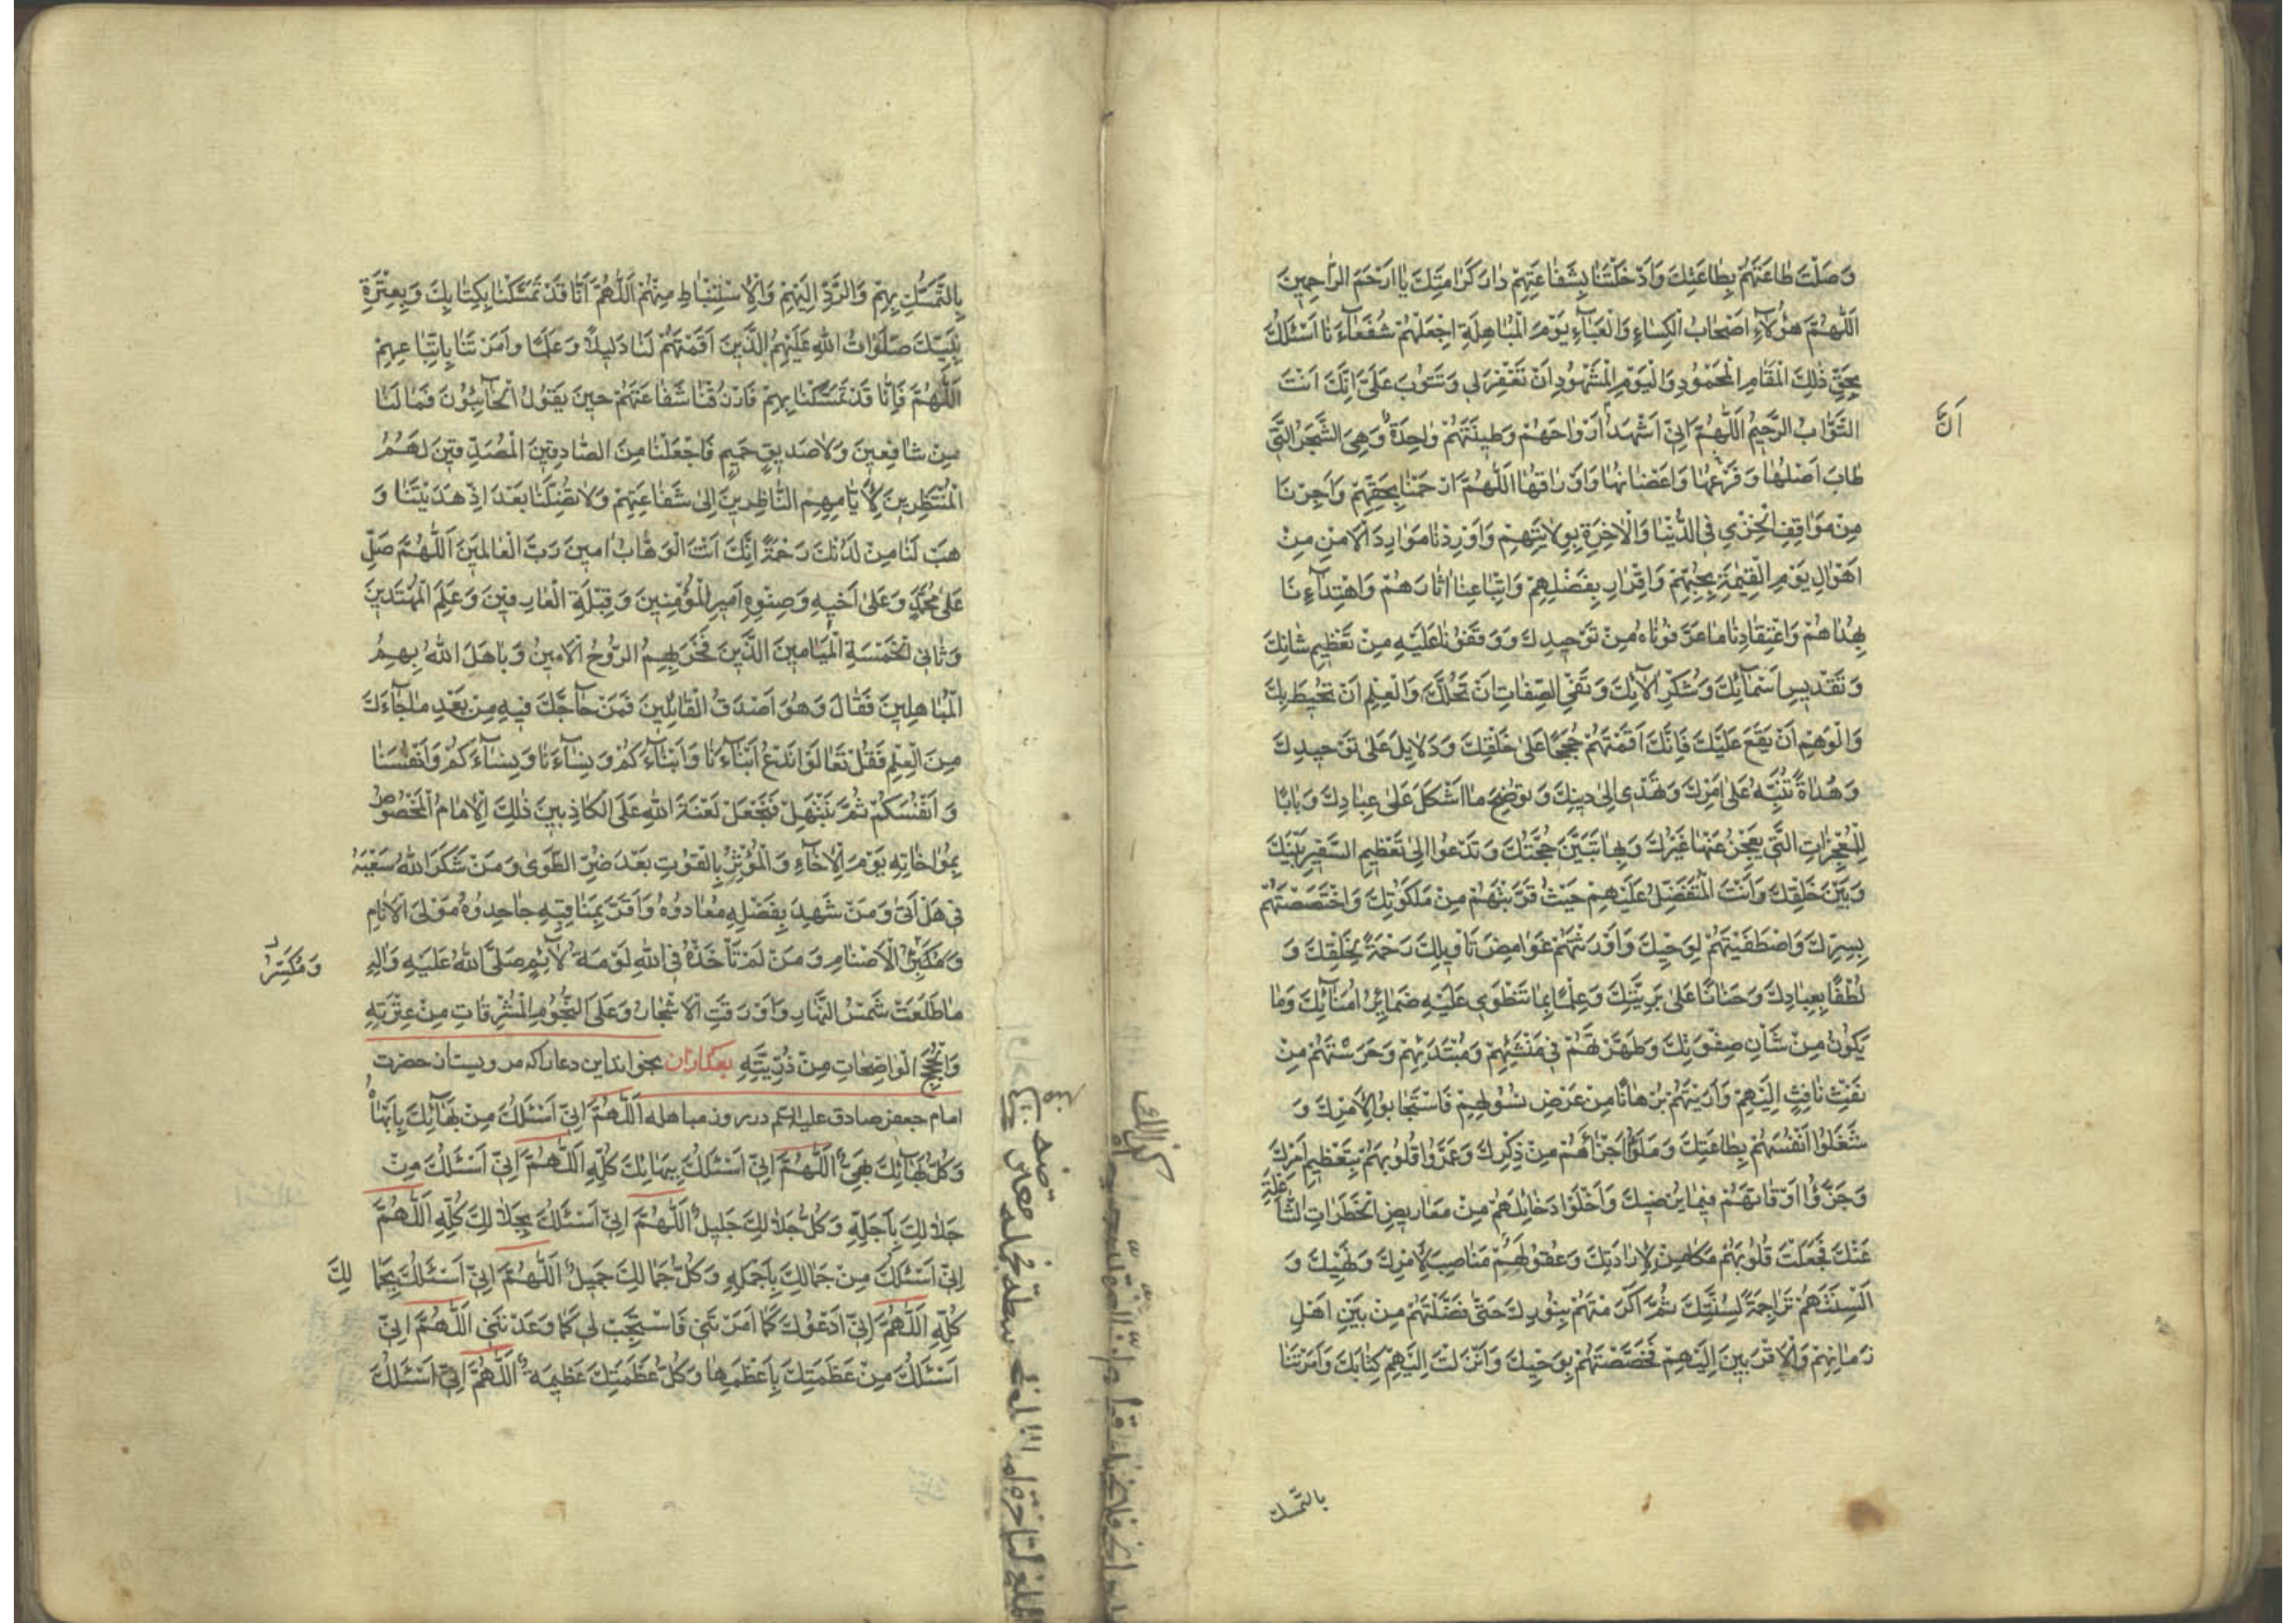 وَصَلْتَ طٰاعَتَهُمْ بِطٰاعَتِكَ وَاَدْخَلْتَنٰا بِشَفٰاعَتِهِمْ دٰارَ كَرٰامَتِكَ يٰا اَرْحَمَ الرّٰاحِمِينَ
اَللّٰهُمَّ هٰؤُلٰآءِ اَصْحٰابُ الْكِسٰاءِ وَالْعَبٰآءِ يَوْمَ الْمُبٰاهِلَةِ اجْعَلْهُمْ شُفَعٰآءَنٰا اَسْئَلُكَ
بِحَقِّ ذٰلِكَ الْمَقٰامِ الْمَحْمُودِ وَالْيَوْمِ الْمَشْهُودِ اَنْ تَغْفِرَ لِي وَتَتُوبَ عَلَيَّ اِنَّكَ اَنْتَ
التَّوّٰابُ الرَّحِيمُ اَللّٰهُمَّ اِنِّي اَشْهَدُ اَرْوٰاحَهُمْ وَطِينَتَهُمْ وٰاحِدَةٌ وَهِيَ الشَّجَرُ الَّتِي
اَنَّ
طٰابَ اَصْلُهٰا وَفَرْعُهٰا وَاَغْصٰانُهٰا وَاَوْرٰاقُهٰا اَللّٰهُمَّ ارْحَمْنٰا بِحَقِّهِمْ وَاَجِرْنٰا
مِنْ مَوٰاقِفِ الْخِزْيِ فِي الدُّنْيٰا وَالْاٰخِرَةِ بِوِلٰايَتِهِمْ وَاَوْرِدْنٰا مَوٰارِدَ الْاَمْنِ مِنْ
اَهْوٰالِ يَوْمِ الْقِيٰمَةِ بِحُبِّهِمْ وَاِقْرٰارِ بِفَضْلِهِمْ وَاتِّبٰاعِنٰا اٰثٰارَهُمْ وَاهْتِدٰآءِنٰا
بِهُدٰاهُمْ وَاعْتِقٰادِنٰا مٰا عَرَّفُونٰاهُ مِنْ تَوْحِيدِكَ وَوَقَّفُونٰا عَلَيْهِ مِنْ تَعْظِيمِ شٰانِكَ
وَتَقْدِيسِ اَسْمٰآئِكَ وَشُكْرِ اٰلٰآئِكَ وَنَفْيِ الصِّفٰاتِ اَنْ تَحُلَّكَ وَالْعِلْمِ اَنْ تُحِيطَ بِكَ
وَالْوَهْمِ اَنْ يَقَعَ عَلَيْكَ فَاِنَّكَ اَقَمْتَهُمْ حُجَجًا عَلىٰ خَلْقِكَ وَدَلٰايِلَ عَلىٰ تَوْحِيدِكَ
وَهُدٰاةً تُنَبِّهُ عَلىٰ اَمْرِكَ وَتَهْدِي اِلىٰ دِينِكَ وَتُوضِحُ مٰا اَشْكَلَ عَلىٰ عِبٰادِكَ وَبٰابًا
لِلْمُعْجِزٰاتِ الَّتِي يَعْجِزُ عَنْهٰا غَيْرُكَ وَبِهٰا تَبَيَّنَ حُجَّتُكَ وَتَدْعُوا اِلىٰ تَعْظِيمِ السَّفِيرِ بَيْنَكَ
وَبَيْنَ خَلْقِكَ وَاَنْتَ الْمُتَفَضِّلُ عَلَيْهِمْ حَيْثُ قَرَّبْتَهُمْ مِنْ مَلَكُوتِكَ وَاخْتَصَصْتَهُمْ
بِسِرِّكَ وَاصْطَفَيْتَهُمْ لِوَحْيِكَ وَاَوْرَثْتَهُمْ غَوٰامِضَ تَاْوِيلِكَ رَحْمَةً بِخَلْقِكَ وَ
لُطْفًا بِعِبٰادِكَ وَحَنٰانًا عَلىٰ بَرِيَّتِكَ وَعِلْمًا بِمٰا تَنْطَوِي عَلَيْهِ ضَمٰائِرُ اُمَنٰآئِكَ وَمٰا
يَكُونُ مِنْ شَاْنِ صِفْوَتِكَ وَطَهَّرْتَهُمْ فِي مَنْشَئِهِمْ وَمُبْتَدَئِهِمْ وَحَرَسْتَهُمْ مِنْ
نَفْثِ نٰافِثٍ اِلَيْهِمْ وَاَرَيْتَهُمْ بُرْهٰانًا مِنْ عَرْضِ بِسُولِهِمْ فَاسْتَجٰابُوا لِاَمْرِكَ وَ
شَغَلُوا اَنْفُسَهُمْ بِطٰاعَتِكَ وَمَلَؤُا اَجْزٰائَهُمْ مِنْ ذِكْرِكَ وَعَمَّرُوا قُلُوبَهُمْ بِتَعْظِيمِ اَمْرِكَ
وَجَزَّؤُا اَوْقٰاتَهُمْ فِيمٰا يُرْضِيكَ وَاَخْلَوْا دَخٰائِلَهُمْ مِنْ مَعٰارِيضِ الْخَطَرٰاتِ الشّٰاغِلَةِ
عَنْكَ فَجَعَلْتَ قُلُوبَهُمْ مَكٰامِنَ لِاِرٰادَتِكَ وَعُقُولَهُمْ مَنٰاصِبَ لِاَمْرِكَ وَنَهْيِكَ وَ
اَلْسِنَتَهُمْ تَرٰاجِمَةً لِسُنَّتِكَ ثُمَّ اَكْرَمْتَهُمْ بِنُورِكَ حَتّٰى فَضَّلْتَهُمْ مِنْ بَيْنِ اَهْلِ
زَمٰانِهِمْ وَالْاَقْرَبِينَ اِلَيْهِمْ فَخَصَصْتَهُمْ بِوَحْيِكَ وَاَنْزَلْتَ اِلَيْهِمْ كِتٰابَكَ وَاَمَرْتَنٰا
بالتمسك
بِالتَّمَسُّكِ بِهِمْ وَالرَّدِّ اِلَيْهِمْ وَالْاِسْتِنْبٰاطِ مِنْهُمْ اَللّٰهُمَّ اِنّٰا قَدْ تَمَسَّكْنٰا بِكِتٰابِكَ وَبِعِتْرَةِ
نَبِيِّكَ صَلَوٰاتُ اللهِ عَلَيْهِمُ الَّذِينَ اَقَمْتَهُمْ لَنٰا دَلِيلًا وَعَلَمًا وَاَمَرْتَنٰا بِاتِّبٰاعِهِمْ
اَللّٰهُمَّ فَاِنّٰا قَدْ تَمَسَّكْنٰا بِهِمْ فَارْزُقْنٰا شَفٰاعَتَهُمْ حِينَ يَقُولُ الْخٰآئِبُونَ فَمٰا لَنٰا
مِنْ شٰافِعِينَ وَلٰا صَدِيقٍ حَمِيمٍ فَاجْعَلْنٰا مِنَ الصّٰادِقِينَ الْمُصَدِّقِينَ لَهُمُ
الْمُنْتَظِرِينَ لِاَيّٰامِهِمِ النّٰاظِرِينَ اِلىٰ شَفٰاعَتِهِمْ وَلٰا تُضِلَّنٰا بَعْدَ اِذْ هَدَيْتَنٰا وَ
هَبْ لَنٰا مِنْ لَدُنْكَ رَحْمَةً اِنَّكَ اَنْتَ الْوَهّٰابُ اٰمِينَ رَبَّ الْعٰالَمِينَ اَللّٰهُمَّ صَلِّ
عَلىٰ مُحَمَّدٍ وَعَلىٰ اَخِيهِ وَصِنْوِهِ اَمِيرِ الْمُؤْمِنِينَ وَقِبْلَةِ الْعٰارِفِينَ وَعَلَمِ الْمُهْتَدِينَ
وَثٰانِي الْخَمْسَةِ الْمَيٰامِينَ الَّذِينَ فَخَرَ بِهِمُ الرُّوحُ الْاَمِينُ وَبٰاهَلَ اللهُ بِهِمُ
الْمُبٰاهِلِينَ فَقٰالَ وَهُوَ اَصْدَقُ الْقٰائِلِينَ فَمَنْ حٰآجَّكَ فِيهِ مِنْ بَعْدِ مٰا جٰآءَكَ
مِنَ الْعِلْمِ فَقُلْ تَعٰالَوْا نَدْعُ اَبْنٰآءَنٰا وَاَبْنٰآءَكُمْ وَنِسٰآءَنٰا وَنِسٰآءَكُمْ وَاَنْفُسَنٰا
وَاَنْفُسَكُمْ ثُمَّ نَبْتَهِلْ فَنَجْعَلْ لَعْنَةَ اللهِ عَلَى الْكٰاذِبِينَ ذٰلِكَ الْاِمٰامُ الْمَخْصُوصُ
بِمُوٰاخٰاتِهِ يَوْمَ الْاِخٰآءِ وَالْمُؤْثِرُ بِالْقُوتِ بَعْدَ ضُرِّ الطَّوىٰ وَمَنْ شَكَرَ اللهُ سَعْيَهُ
فِي هَلْ اَتىٰ وَمَنْ شَهِدَ بِفَضْلِهِ مُعٰادُوهُ وَاَقَرَّ بِمَنٰاقِبِهِ جٰاحِدُوهُ مَوْلَى الْاَنٰامِ
وَمُكَسِّرُ الْاَصْنٰامِ وَمَنْ لَمْ تَاْخُذْهُ فِي اللهِ لَوْمَةُ لٰآئِمٍ صَلَّى اللهُ عَلَيْهِ وَاٰلِهِ
وَمُكَسِّرُ
مٰا طَلَعَتْ شَمْسُ النَّهٰارِ وَاَوْرَقَتِ الْاَشْجٰارُ وَعَلَى النُّجُومِ الْمُشْرِقٰاتِ مِنْ عِتْرَتِهِ
وَالْحُجَجِ الْوٰاضِحٰاتِ مِنْ ذُرِّيَّتِهِ بخواند این دعا را که مرویست از حضرت
امام جعفر صادق علیه السلام در روز مباهله اَللّٰهُمَّ اِنِّي اَسْئَلُكَ مِنْ بَهٰآئِكَ بِاَبْهٰاهُ
وَكُلُّ بَهٰآئِكَ بَهِيٌّ اَللّٰهُمَّ اِنِّي اَسْئَلُكَ بِبَهٰائِكَ كُلِّهِ اَللّٰهُمَّ اِنِّي اَسْئَلُكَ مِنْ
جَلٰالِكَ بِاَجَلِّهِ وَكُلُّ جَلٰالِكَ جَلِيلٌ اَللّٰهُمَّ اِنِّي اَسْئَلُكَ بِجَلٰالِكَ كُلِّهِ اَللّٰهُمَّ
اِنِّي اَسْئَلُكَ مِنْ جَمٰالِكَ بِاَجْمَلِهِ وَكُلُّ جَمٰالِكَ جَمِيلٌ اَللّٰهُمَّ اِنِّي اَسْئَلُكَ بِجَمٰالِكَ
كُلِّهِ اَللّٰهُمَّ اِنِّي اَدْعُوكَ كَمٰا اَمَرْتَنِي فَاسْتَجِبْ لِي كَمٰا وَعَدْتَنِي اَللّٰهُمَّ اِنِّي
اَسْئَلُكَ مِنْ عَظَمَتِكَ بِاَعْظَمِهٰا وَكُلُّ عَظَمَتِكَ عَظِيمَةٌ اَللّٰهُمَّ اِنِّي اَسْئَلُكَ